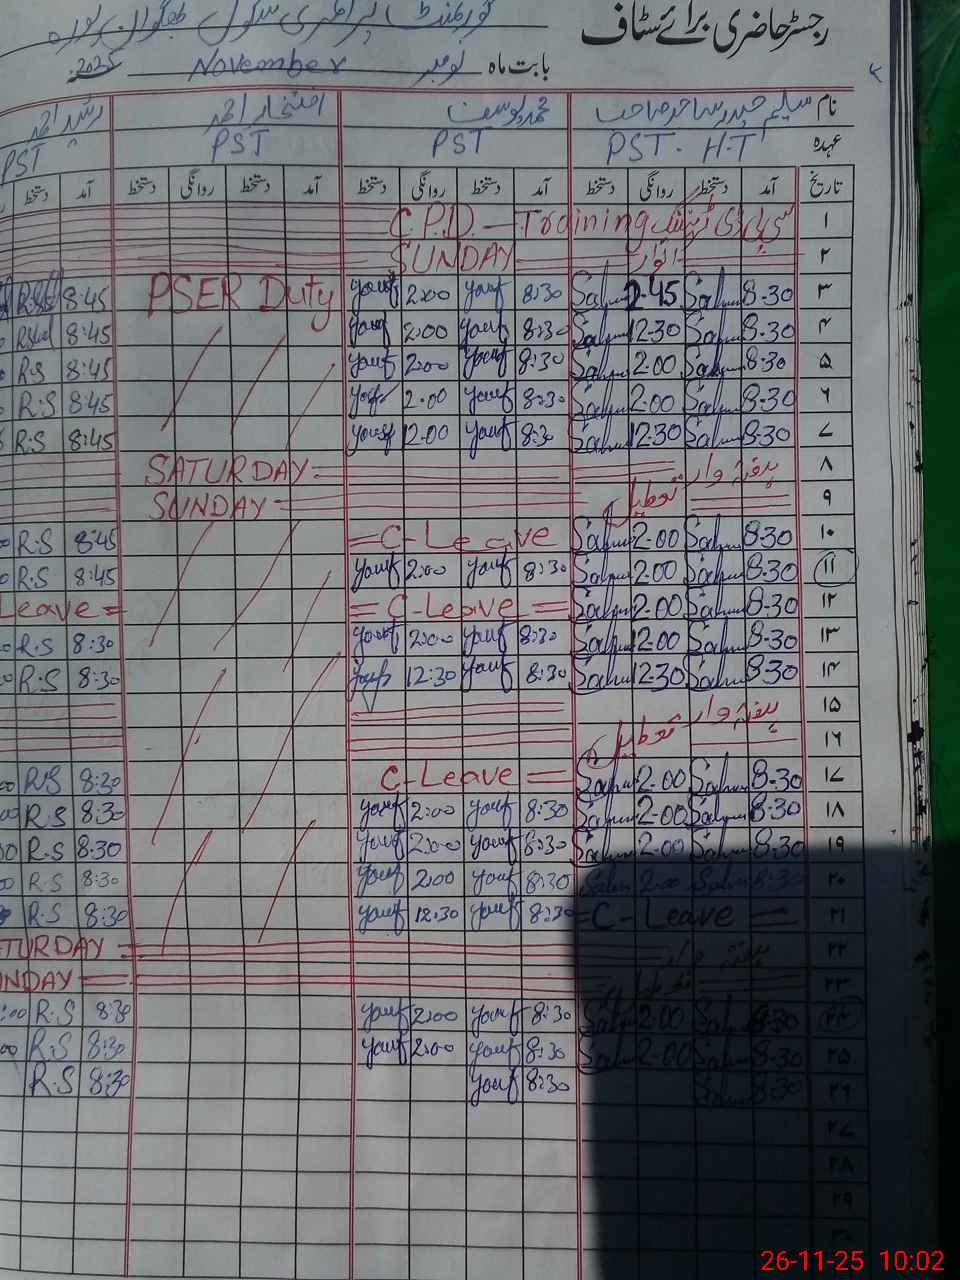 رجسٹر حاضری برائے سٹاف
گورنمنٹ پرائمری سکول
بابت ماہ نومبر November 2025
نام سلیم حیدر ساحر صاحب محمد یوسف افتخار احمد رشید احمد
عہدہ PST - H.T PST PST PST
تاریخ آمد دستخط روانگی دستخط آمد دستخط روانگی دستخط آمد دستخط روانگی دستخط آمد دستخط
۱ سی پی ڈی ٹریننگ C.P.D. - Training
۲ اتوار SUNDAY
۳ 8-30 Salim 2-45 Salim 8:30 yousf 2:00 yousf PSER Duty 8:45 R.S
۴ 8-30 Salim 12-30 Salim 8:30 yousf 2:00 yousf 8:45
۵ 8-30 Salim 2-00 Salim 8:30 yousf 2:00 yousf 8:45 R.S
۶ 8-30 Salim 2-00 Salim 8:30 yousf 2.00 yousf 8:45 R.S
۷ 8-30 Salim 12-30 Salim 8:30 yousf 12.00 yousf 8:45 R.S
۸ ہفتہ وار SATURDAY
۹ تعطیل SUNDAY
۱۰ 8-30 Salim 2-00 Salim C-Leave 8:45 R.S
۱۱ 8-30 Salim 2-00 Salim 8:30 yousf 2:00 yousf 8:45 R.S
۱۲ 8-30 Salim 2-00 Salim C-Leave Leave
۱۳ 8-30 Salim 2-00 Salim 8:30 yousf 2:00 yousf 8:30 R.S
۱۴ 8-30 Salim 12-30 Salim 8:30 yousf 12:30 yousf 8:30 R.S
۱۵ ہفتہ وار
۱۶ تعطیل
۱۷ 8-30 Salim 2-00 Salim C-Leave 8:30 R.S
۱۸ 8-30 Salim 2-00 Salim 8:30 yousf 2:00 yousf 8:30 R.S
۱۹ 8-30 Salim 2-00 Salim 8:30 yousf 2:00 yousf 8:30 R.S
۲۰ 8-30 Salim 2-00 Salim 8:30 yousf 2:00 yousf 8:30 R.S
۲۱ C-Leave 8:30 yousf 12:30 yousf 8:30 R.S
۲۲ ہفتہ وار TURDAY
۲۳ تعطیل NDAY
۲۴ 8-30 Salim 2-00 Salim 8:30 yousf 2:00 yousf 8:30 R.S
۲۵ 8-30 Salim 2-00 Salim 8:30 yousf 2:00 yousf 8:30 R.S
۲۶ 8-30 Salim 8:30 yousf 8:30 R.S
۲۷
۲۸
۲۹
۳۰
26-11-25 10:02